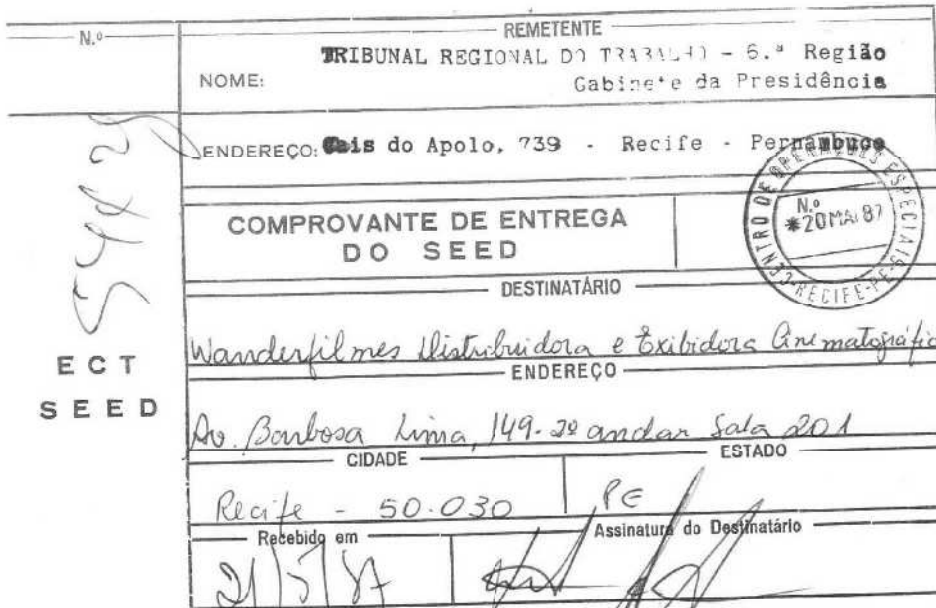 N.º
REMETENTE
NOME: TRIBUNAL REGIONAL DO TRABALHO - 6.ª Região
Gabinete da Presidência
ENDEREÇO: Cais do Apolo, 739 - Recife - Pernambuco
COMPROVANTE DE ENTREGA
DO SEED
CENTRO DE OPERAÇÕES ESPECIAIS
N.º
*20 MAI 87
RECIFE-PE
ECT
SEED
DESTINATÁRIO
Wanderfilmes Distribuidora e Exibidora Cinematográfic
ENDEREÇO
Av. Barbosa Lima, 149-2º andar Sala 201
CIDADE
ESTADO
Recife - 50.030
PE
Recebido em
Assinatura do Destinatário
21/5/87